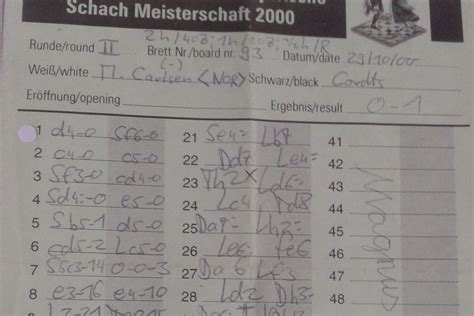 Schach Meisterschaft 2000
Runde/round II Brett Nr./board nr. 93 Datum/date 29/10/00
(-)
Weiß/white M. Carlsen <NOR> Schwarz/black Cordts
Eröffnung/opening Ergebnis/result 0-1
1 d4-0 Sf6-0 21 Se4= Lb7 41
2 c4-0 c5-0 22 Dd7 Le4= 42
3 Sf3-0 cd4-0 23 Th2x Ld6= 43
4 Sd4:-0 e5-0 24 Lc4 Td8 44
5 Sb5-1 d5-0 25 Da7= Lh2= 45
6 cd5-2 Lc5-0 26 Le6= fe6 46
7 S5c3-14 0-0-3 27 Da6 47
8 e3-16 e4-10 28 Ld2 Dh3- 48
Magnus